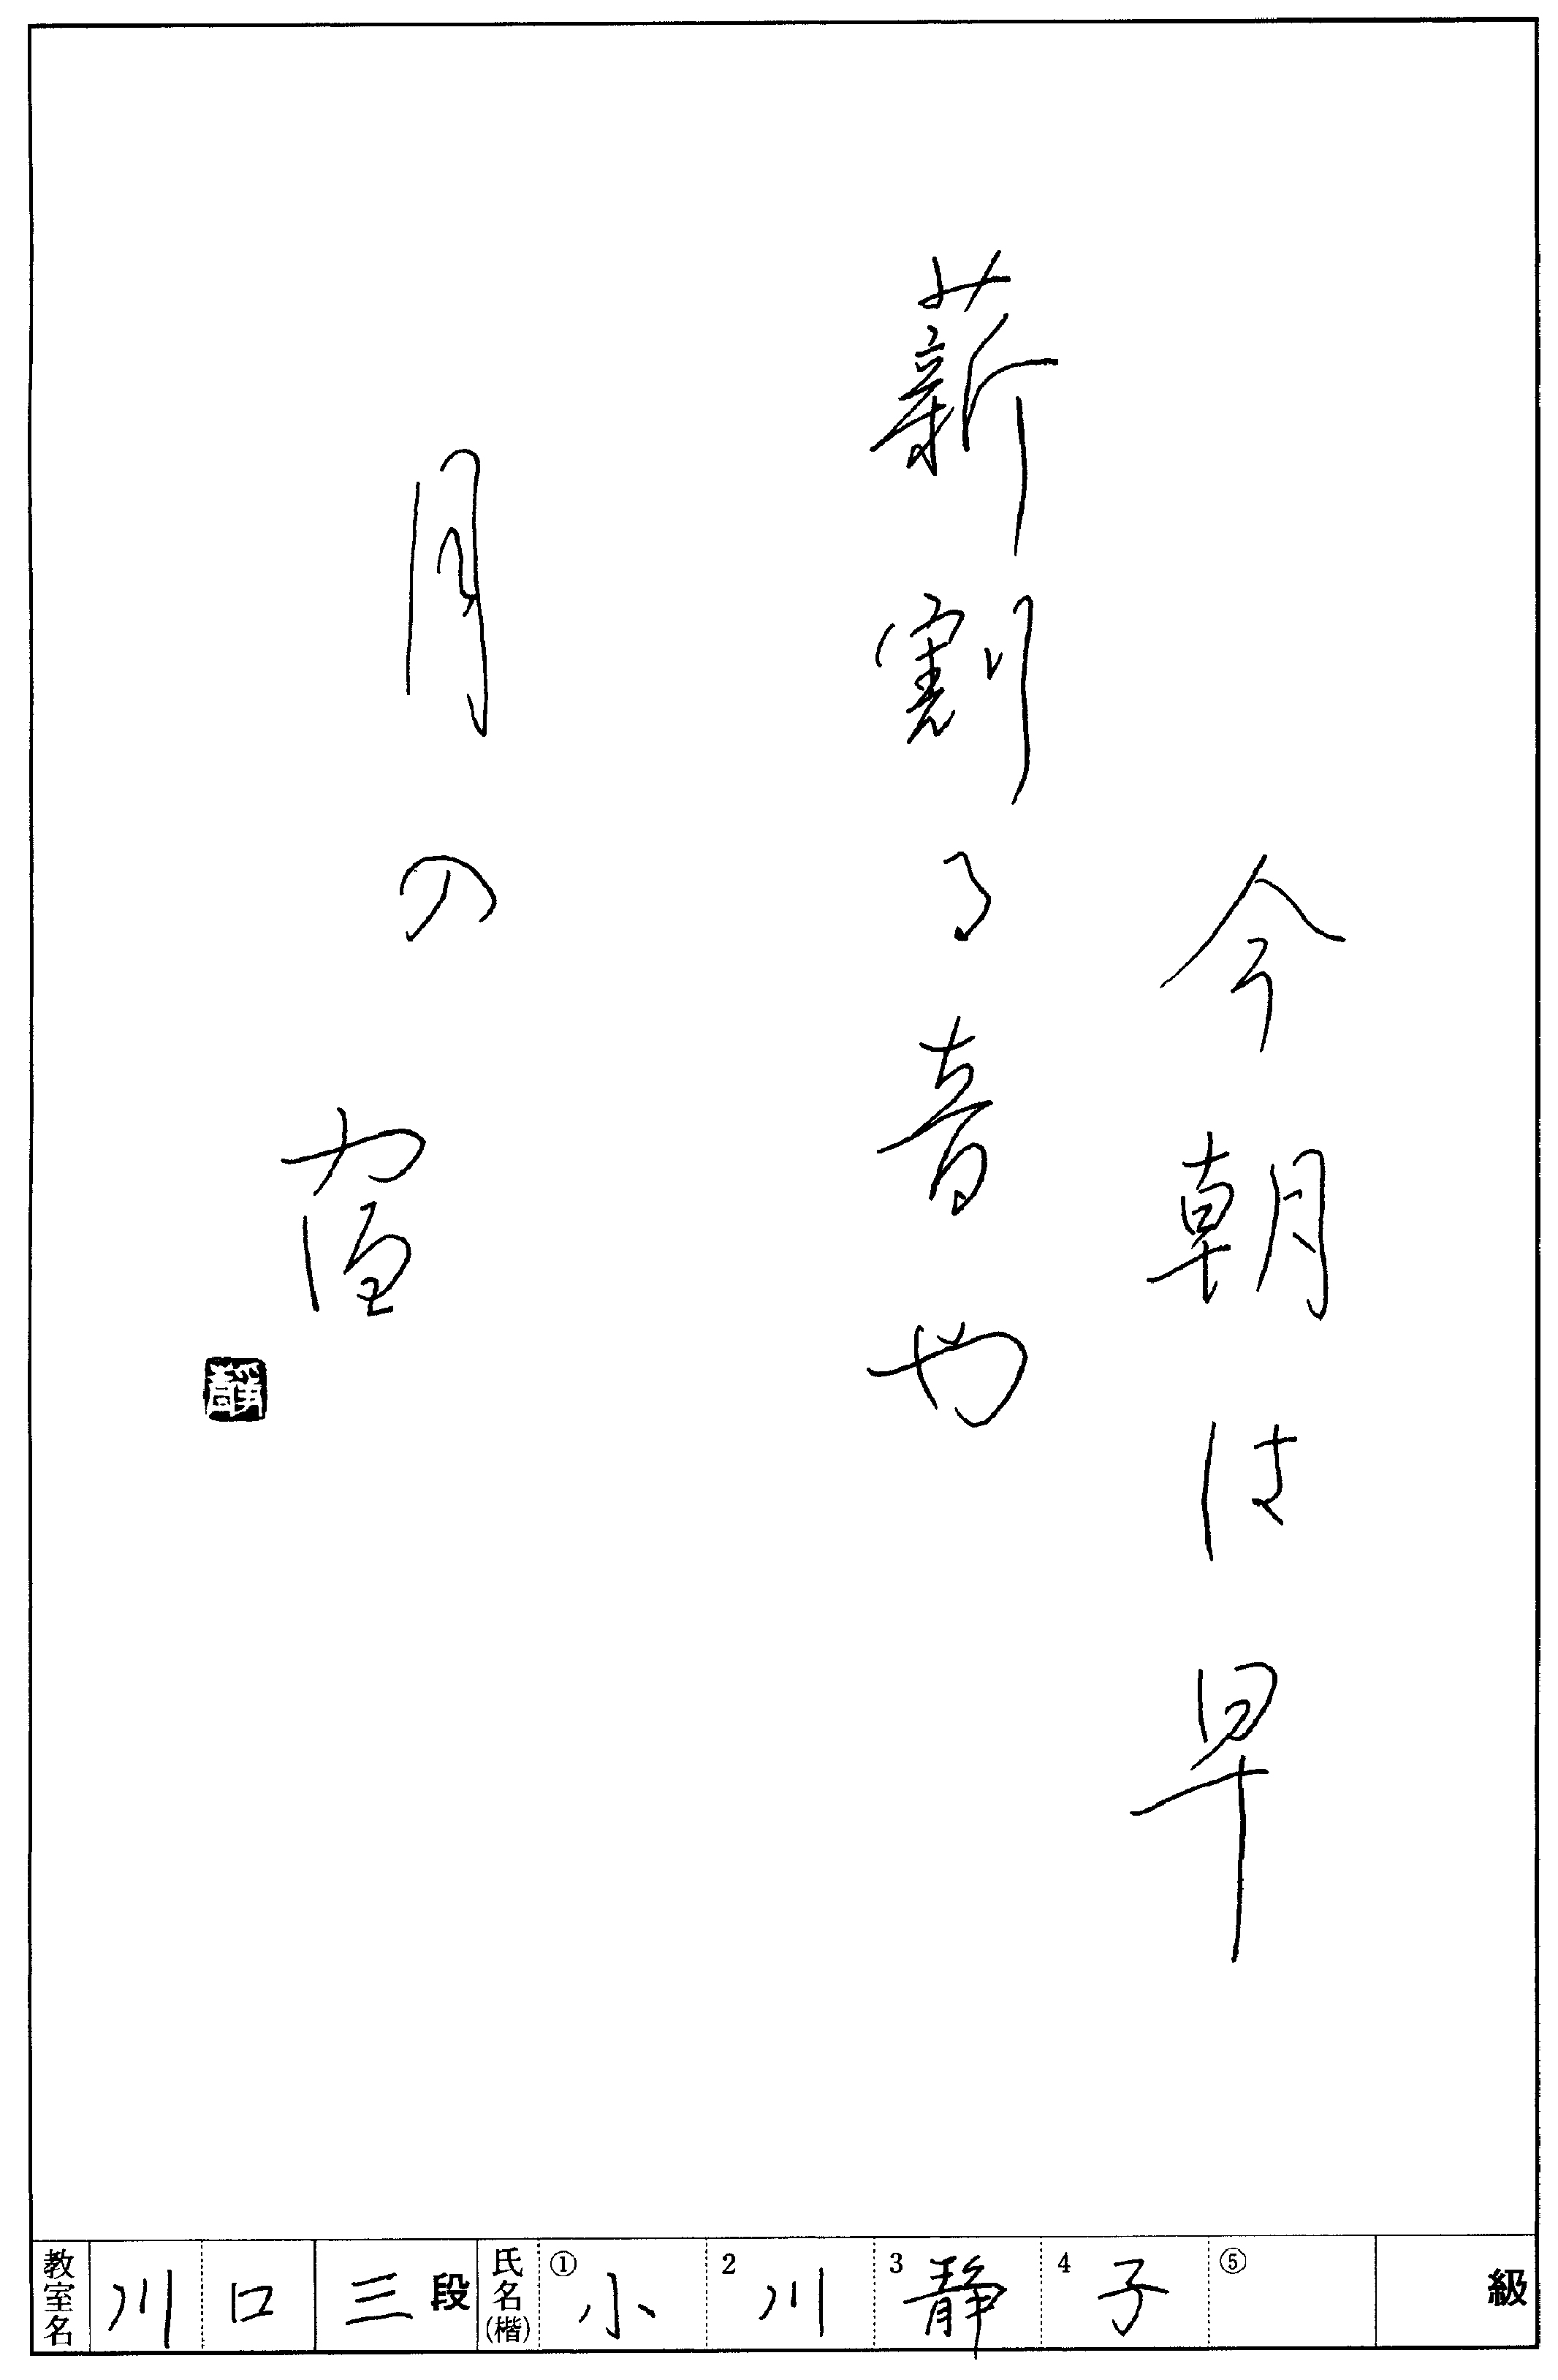 今朝は早
薪割る音や
月の宿
静
教室名 川口 三段 氏名(楷) ①小 2川 3静 4子 ⑤ 級